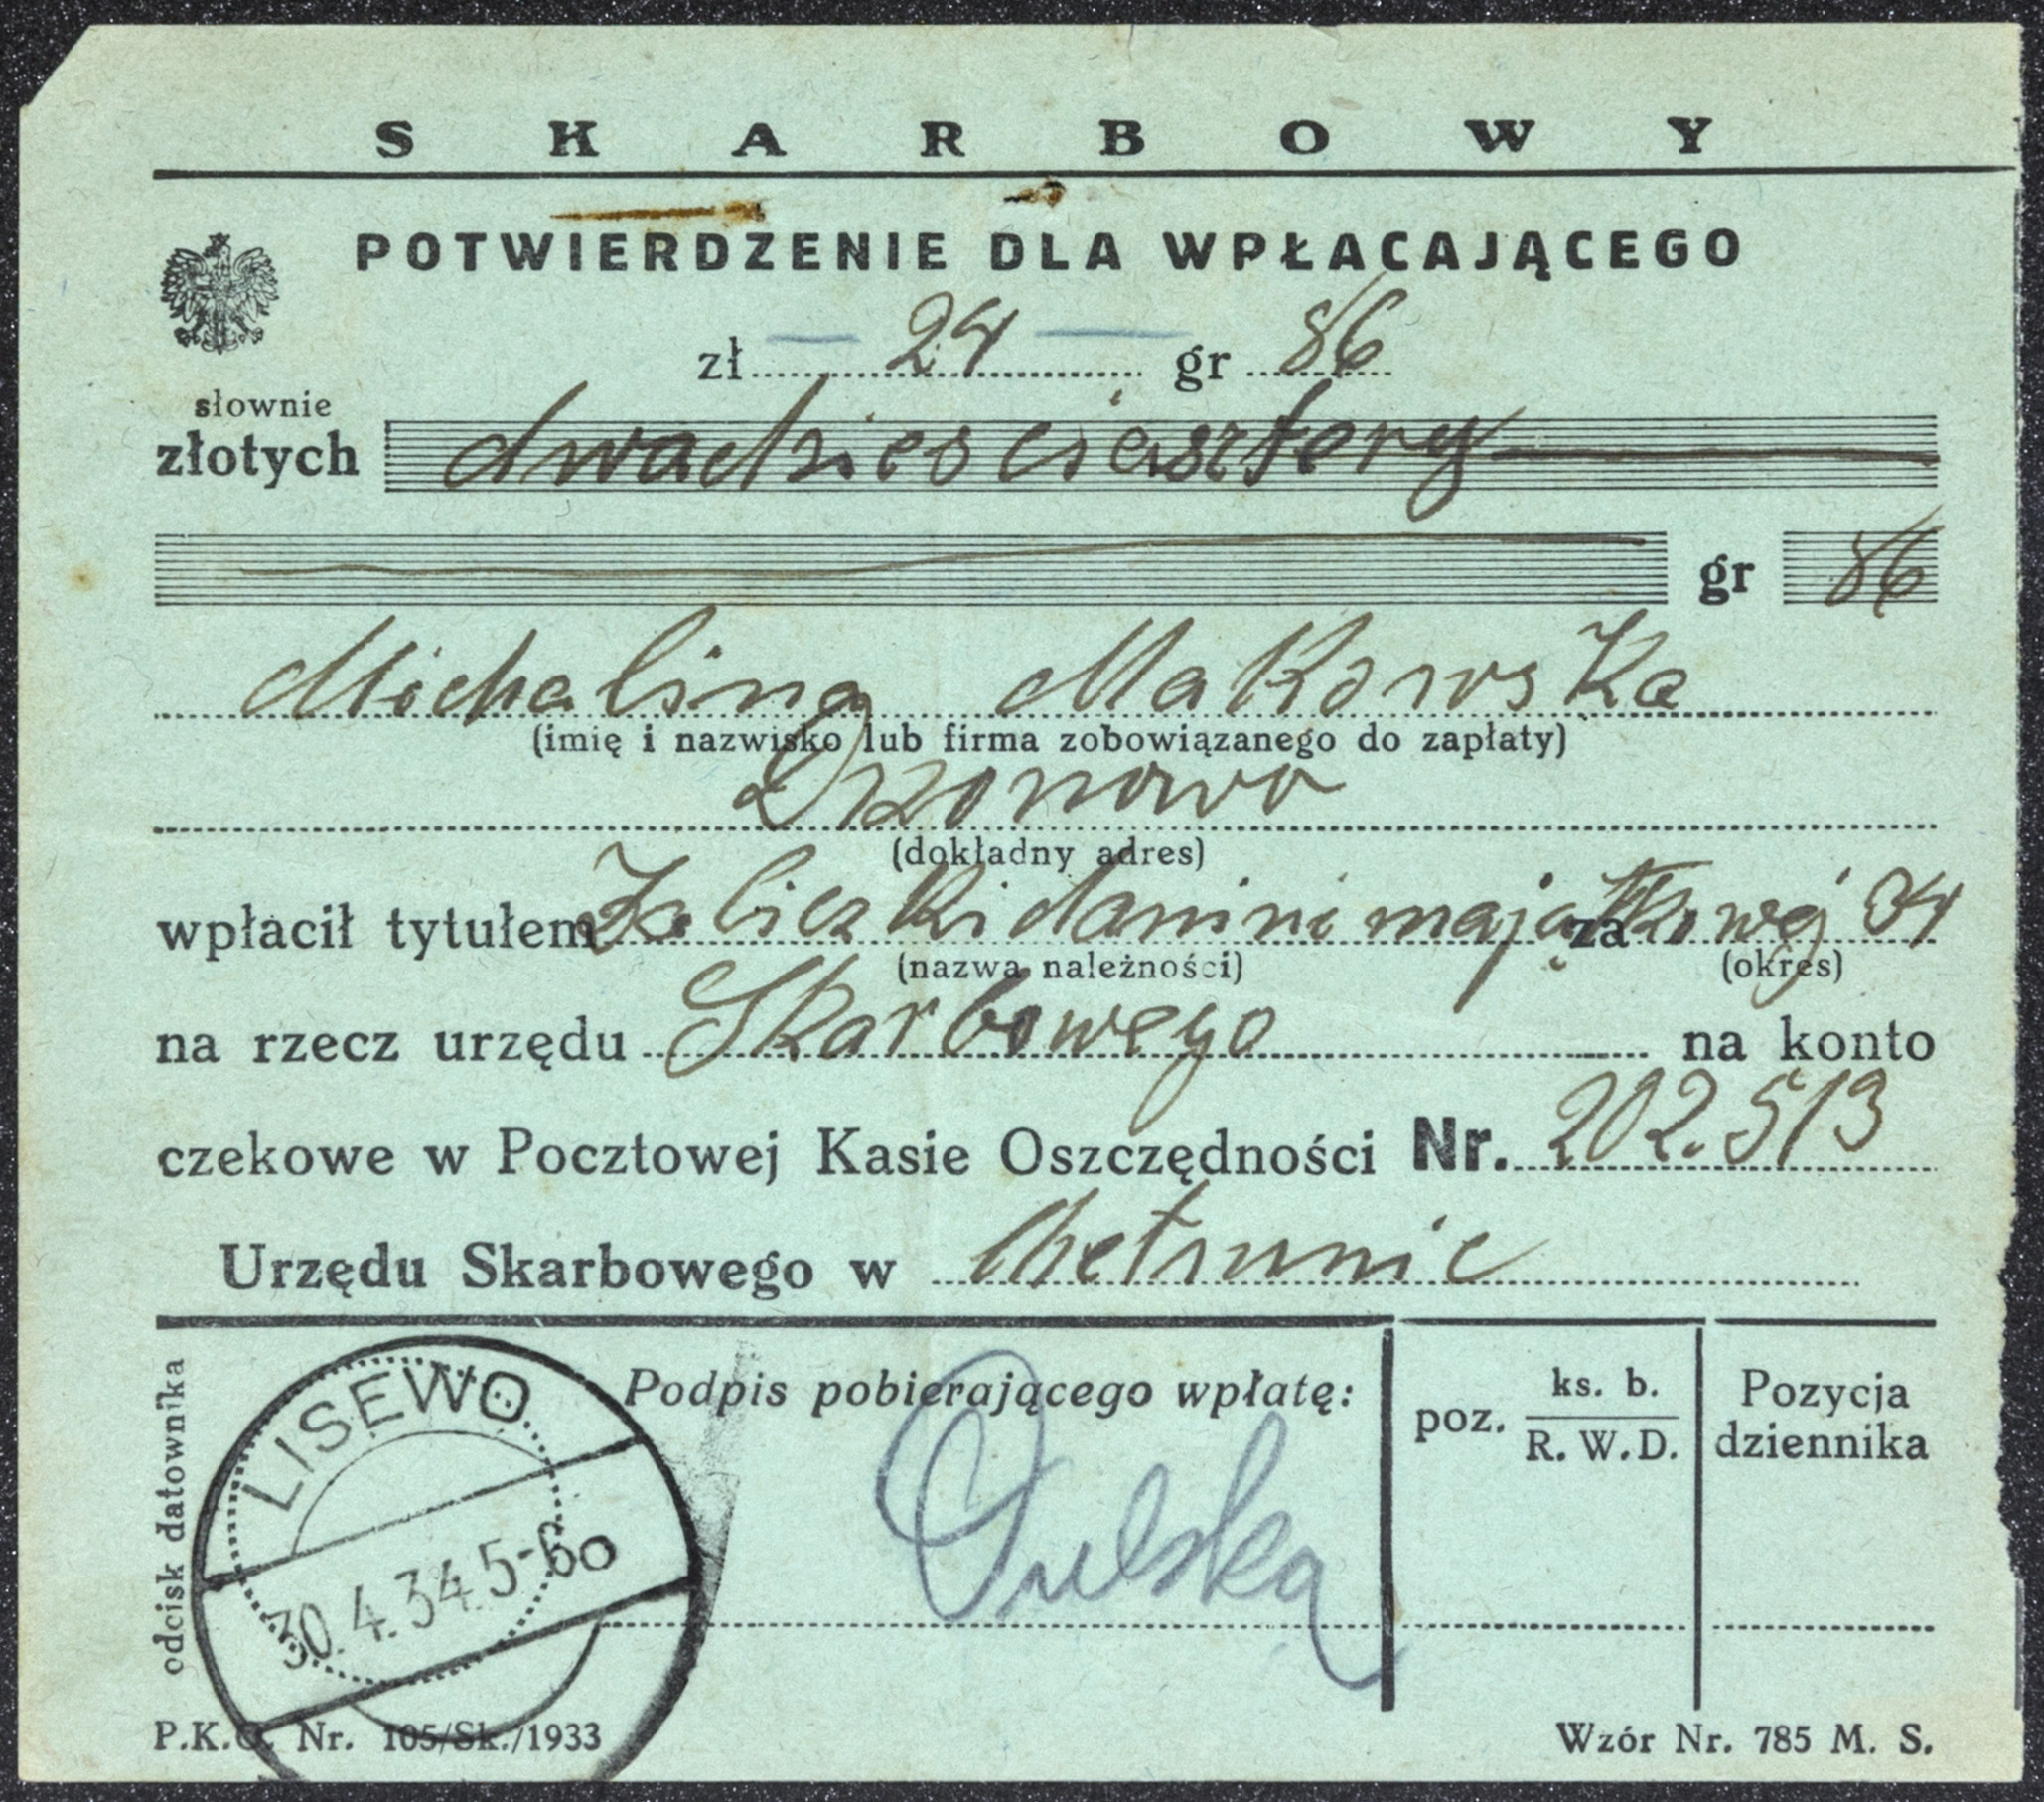 SKARBOWY
POTWIERDZENIE DLA WPŁACAJĄCEGO
zł 24 gr 86
słownie
złotych dwadzieściasztery
gr 86
Michalina Makowska
(imię i nazwisko lub firma zobowiązanego do zapłaty)
Drzonowo
(dokładny adres)
wpłacił tytułem Zaliczki danini majątkowej za 34
(nazwa należności) (okres)
na rzecz urzędu Skarbowego na konto
czekowe w Pocztowej Kasie Oszczędności Nr. 202.513
Urzędu Skarbowego w
odcisk datownika
LISEWO
30.4.34.5-60
Podpis pobierającego wpłatę:
poz. ks. b.
R. W. D.
Pozycja
dziennika
P.K.O. Nr. 105/Sk./1933
Wzór Nr. 785 M. S.